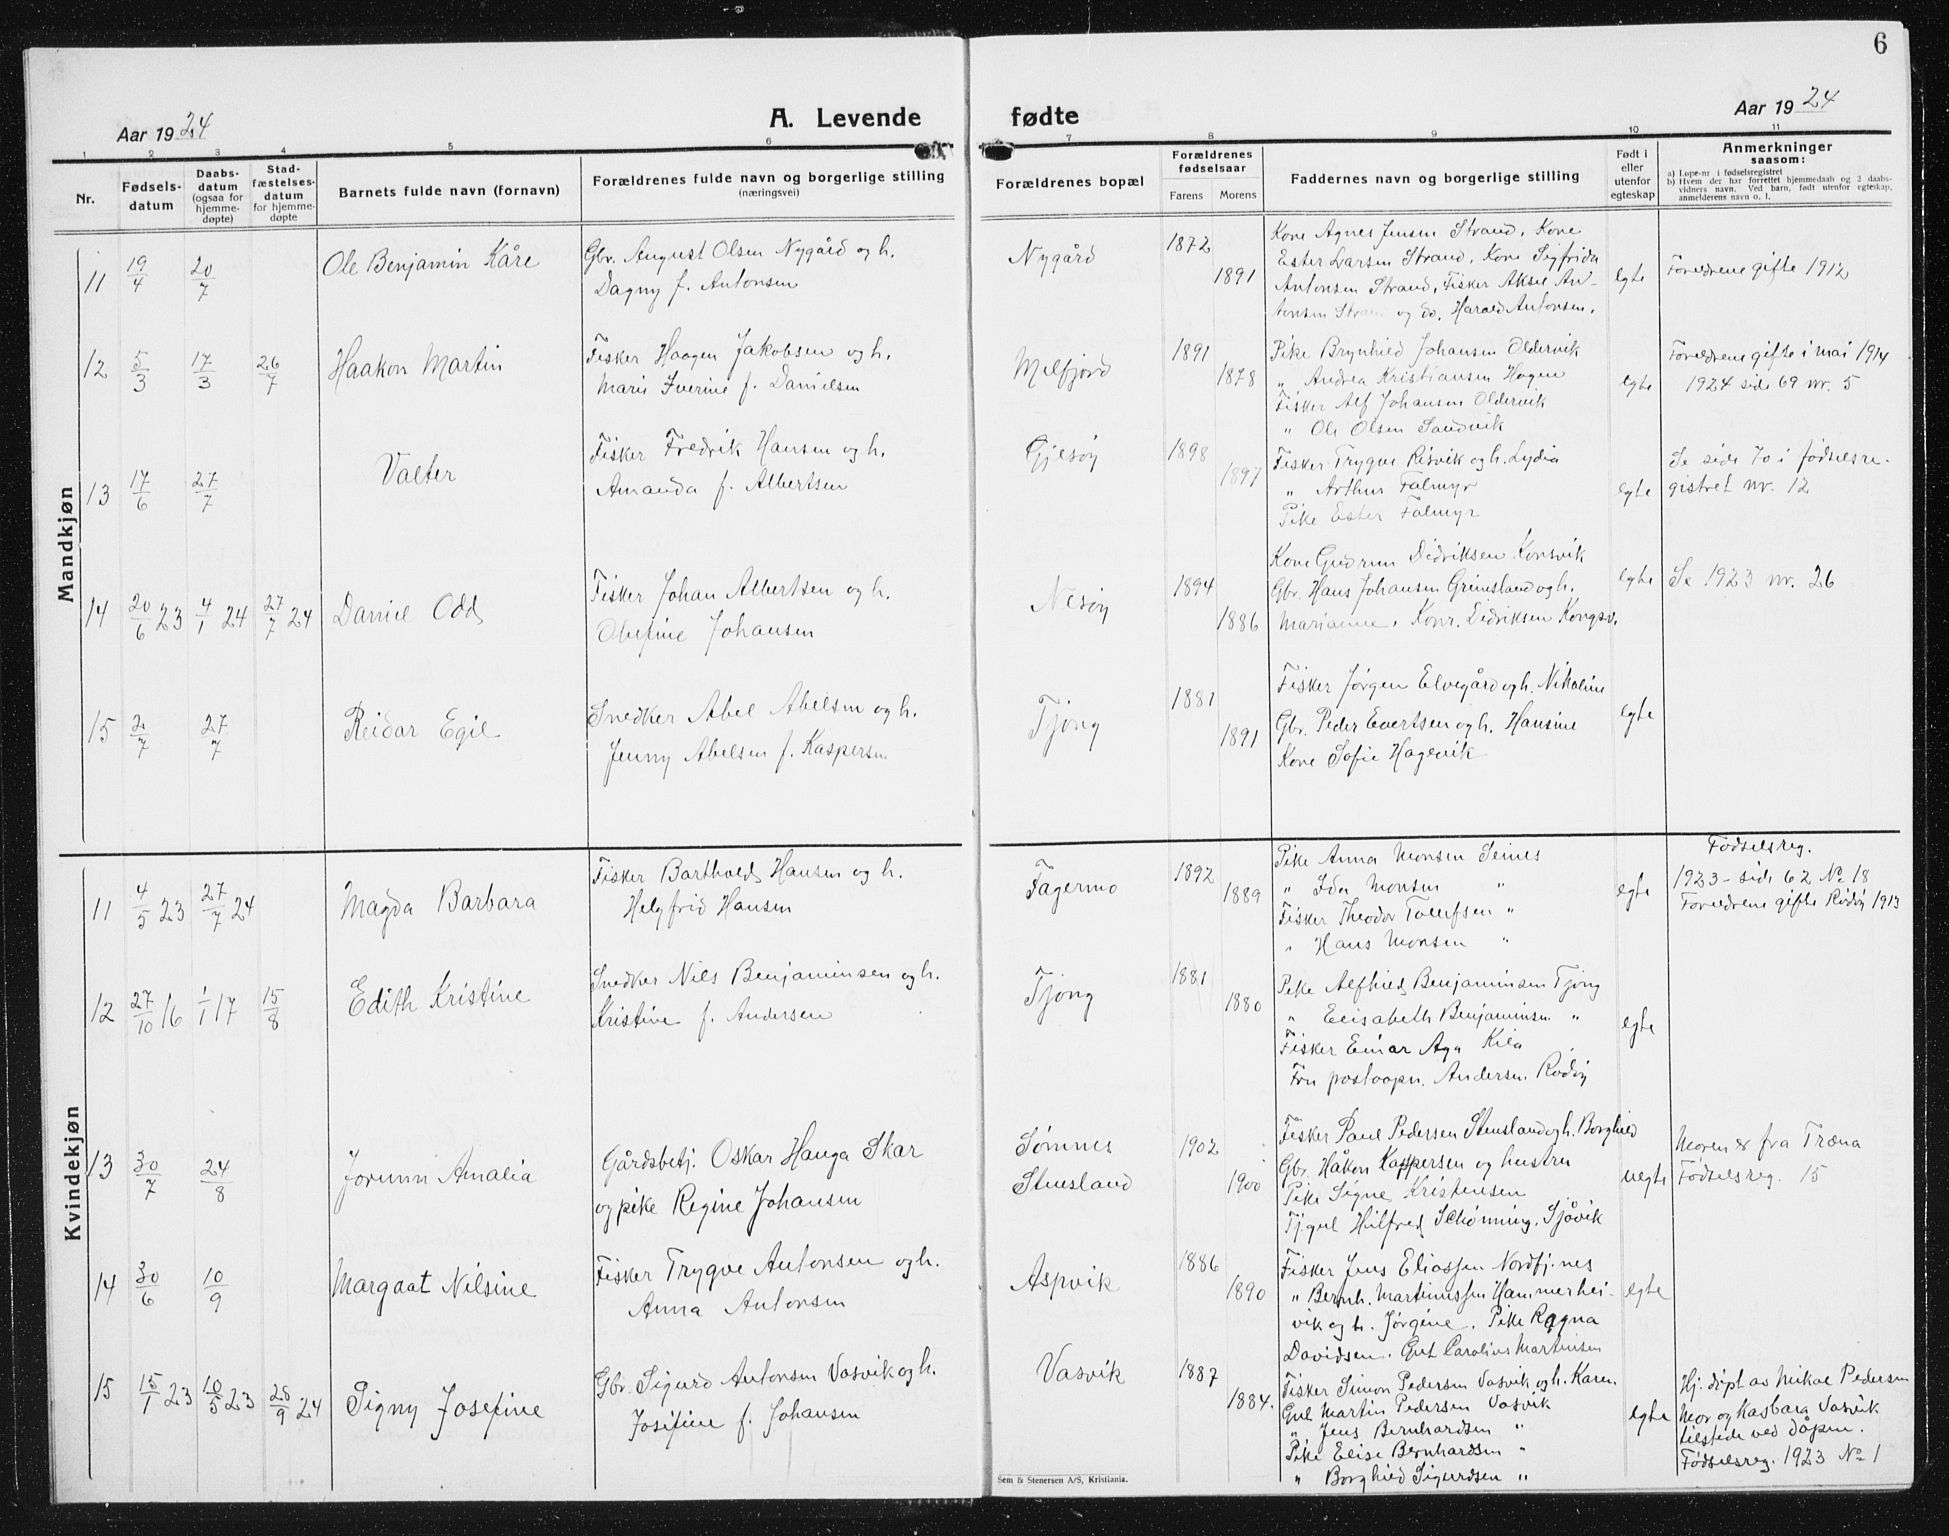 6
Aar 1924
A. Levende
fødte
Aar 1924
1 2 3 4 5 6 7 8 9 10 11
Nr.
Fødsels-
datum
Daabs-
datum
(ogsaa for
hjemme-
døpte)
Stad-
fæstelses-
datum
for hjemme-
døpte
Barnets fulde navn (fornavn)
Forældrenes fulde navn og borgerlige stilling
(næringsvei)
Forældrenes bopæl
Forældrenes
fødselsaar
Farens Morens
Faddernes navn og borgerlige stilling
Født i
eller
utenfor
egteskap
Anmerkninger
saasom:
a) Løpe-nr i fødselsregistret
b) Hvem der har forrettet hjemmedaab og 2 daabs-
vidners navn. Ved barn, født utenfor egteskap,
anmelderens navn o. l.
Mandkjøn
11 19/4 20/7 Ole Benjamin Kåre
Gbr. August Olsen Nygård og h.
Dagny f. Antonsen
Nygård 1872 1891
Kone Agnes Jensen Strand, Kone
Ester Larsen Strand, Kone Sigfrida
Antonsen Strand, Fisker Aksel An-
tonsen Strand og do. Harald Antonsen.
egte
Foreldrene gifte 1912
12 5/3 17/3 26/7 Haakon Martin
Fisker Haagen Jakobsen og h.
Marie Iverine f. Danielsen
Melfjord 1891 1878
Pike Brynhild Johansen Oldervik
" Andrea Kristiansen Hagen
Fisker Alf Johansen Oldervik
" Ole Olsen Sandvik
egte
Foreldrene gifte i mai 1914
1924 side 69 nr. 5
13 17/6 27/7 Valter
Fisker Fredrik Hansen og h.
Amanda f. Albertsen
Gjesøy 1898 1897
Fisker Trygve Risvik og h. Lydia
" Arthur Falmyr
Pike Ester Falmyr
egte
Se side 70 i fødselsre-
gistret nr. 12
14 20/6 23 4/1 24 27/7 24 Daniel Odd
Fisker Johan Albertsen og h.
Olufine Johansen
Nesøy 1894 1886
Kone Gudrun Didriksen Konsvik
Gbr. Hans Johansen Grimsland og h.
Marianne, Konr. Didriksen Kongsv.
egte
Se 1923 nr. 26
15 2/7 27/7 Reidar Egil
Snedker Abel Abelsen og h.
Jenny Abelsen f. Kaspersen
Tjong 1881 1891
Fisker Jørgen Elvegård og h. Nikoline
Gbr. Peder Evertsen og h. Hansine
Kone Sofie Hagevik
egte
Kvindekjøn
11 4/5 23 27/7 24 Magda Barbara
Fisker Barthold Hansen og h.
Helgfrid Hansen
Fagermo 1892 1889
Pike Anna Monsen Seines
" Ida Monsen "
Fisker Theodor Tollefsen "
" Hans Monsen "
egte
Fødselsreg.
1923 - side 62 No 18
Foreldrene gifte Rødøy 1913
12 27/10 16 1/1 17 15/8 Edith Kristine
Snedker Nils Benjaminsen og h.
Kristine f. Andersen
Tjong 1881 1880
Pike Alfhild Benjaminsen Tjong
" Elisabeth Benjaminsen "
Fisker Einar Aga Kila
Fru postoopn. Andersen, Rødøy
egte
13 30/7 24/8 Jorunn Amalia
Gårdsbetj. Oskar Hauga Skar
og pike Regine Johansen
Sømnes
Stensland
1902 1900
Fisker Paul Pedersen Stensland og h. Borghild
Gbr. Håkon Kaspersen og hustru
Pike Signe Kristensen
Tj.gut Hilfred Schønning, Sjøvik
uegte
Moren er fra Træna
Fødselsreg. 15
14 30/6 10/9 Margaat Nilsine
Fisker Trygve Antonsen og h.
Anna Antonsen
Aspvik 1886 1890
Fisker Jens Eliassen Nordfj.nes
" Bernh. Martinussen Hammerhei-
vik og h. Jørgine. Pike Ragna
Davidsen. Gut Carolius Martinsen
egte
15 15/1 23 10/5 23 28/9 24 Signy Josefine
Gbr. Sigurd Antonsen Vasvik og h.
Josefine f. Johansen
Vasvik 1887 1884.
Fisker Simon Pedersen Vasvik og h. Karen
Gut Martin Pedersen Vasvik
" Jens Bernhardsen "
Pike Elise Bernhardsen "
" Borghild Sigurdsen "
egte
Hj. døpt av Mikal Pedersen
Mor og Kasbara Vasvik
tilstede ved dåpen.
Fødselsreg. 1923 No 1
Sem & Stenersen A/S, Kristiania.